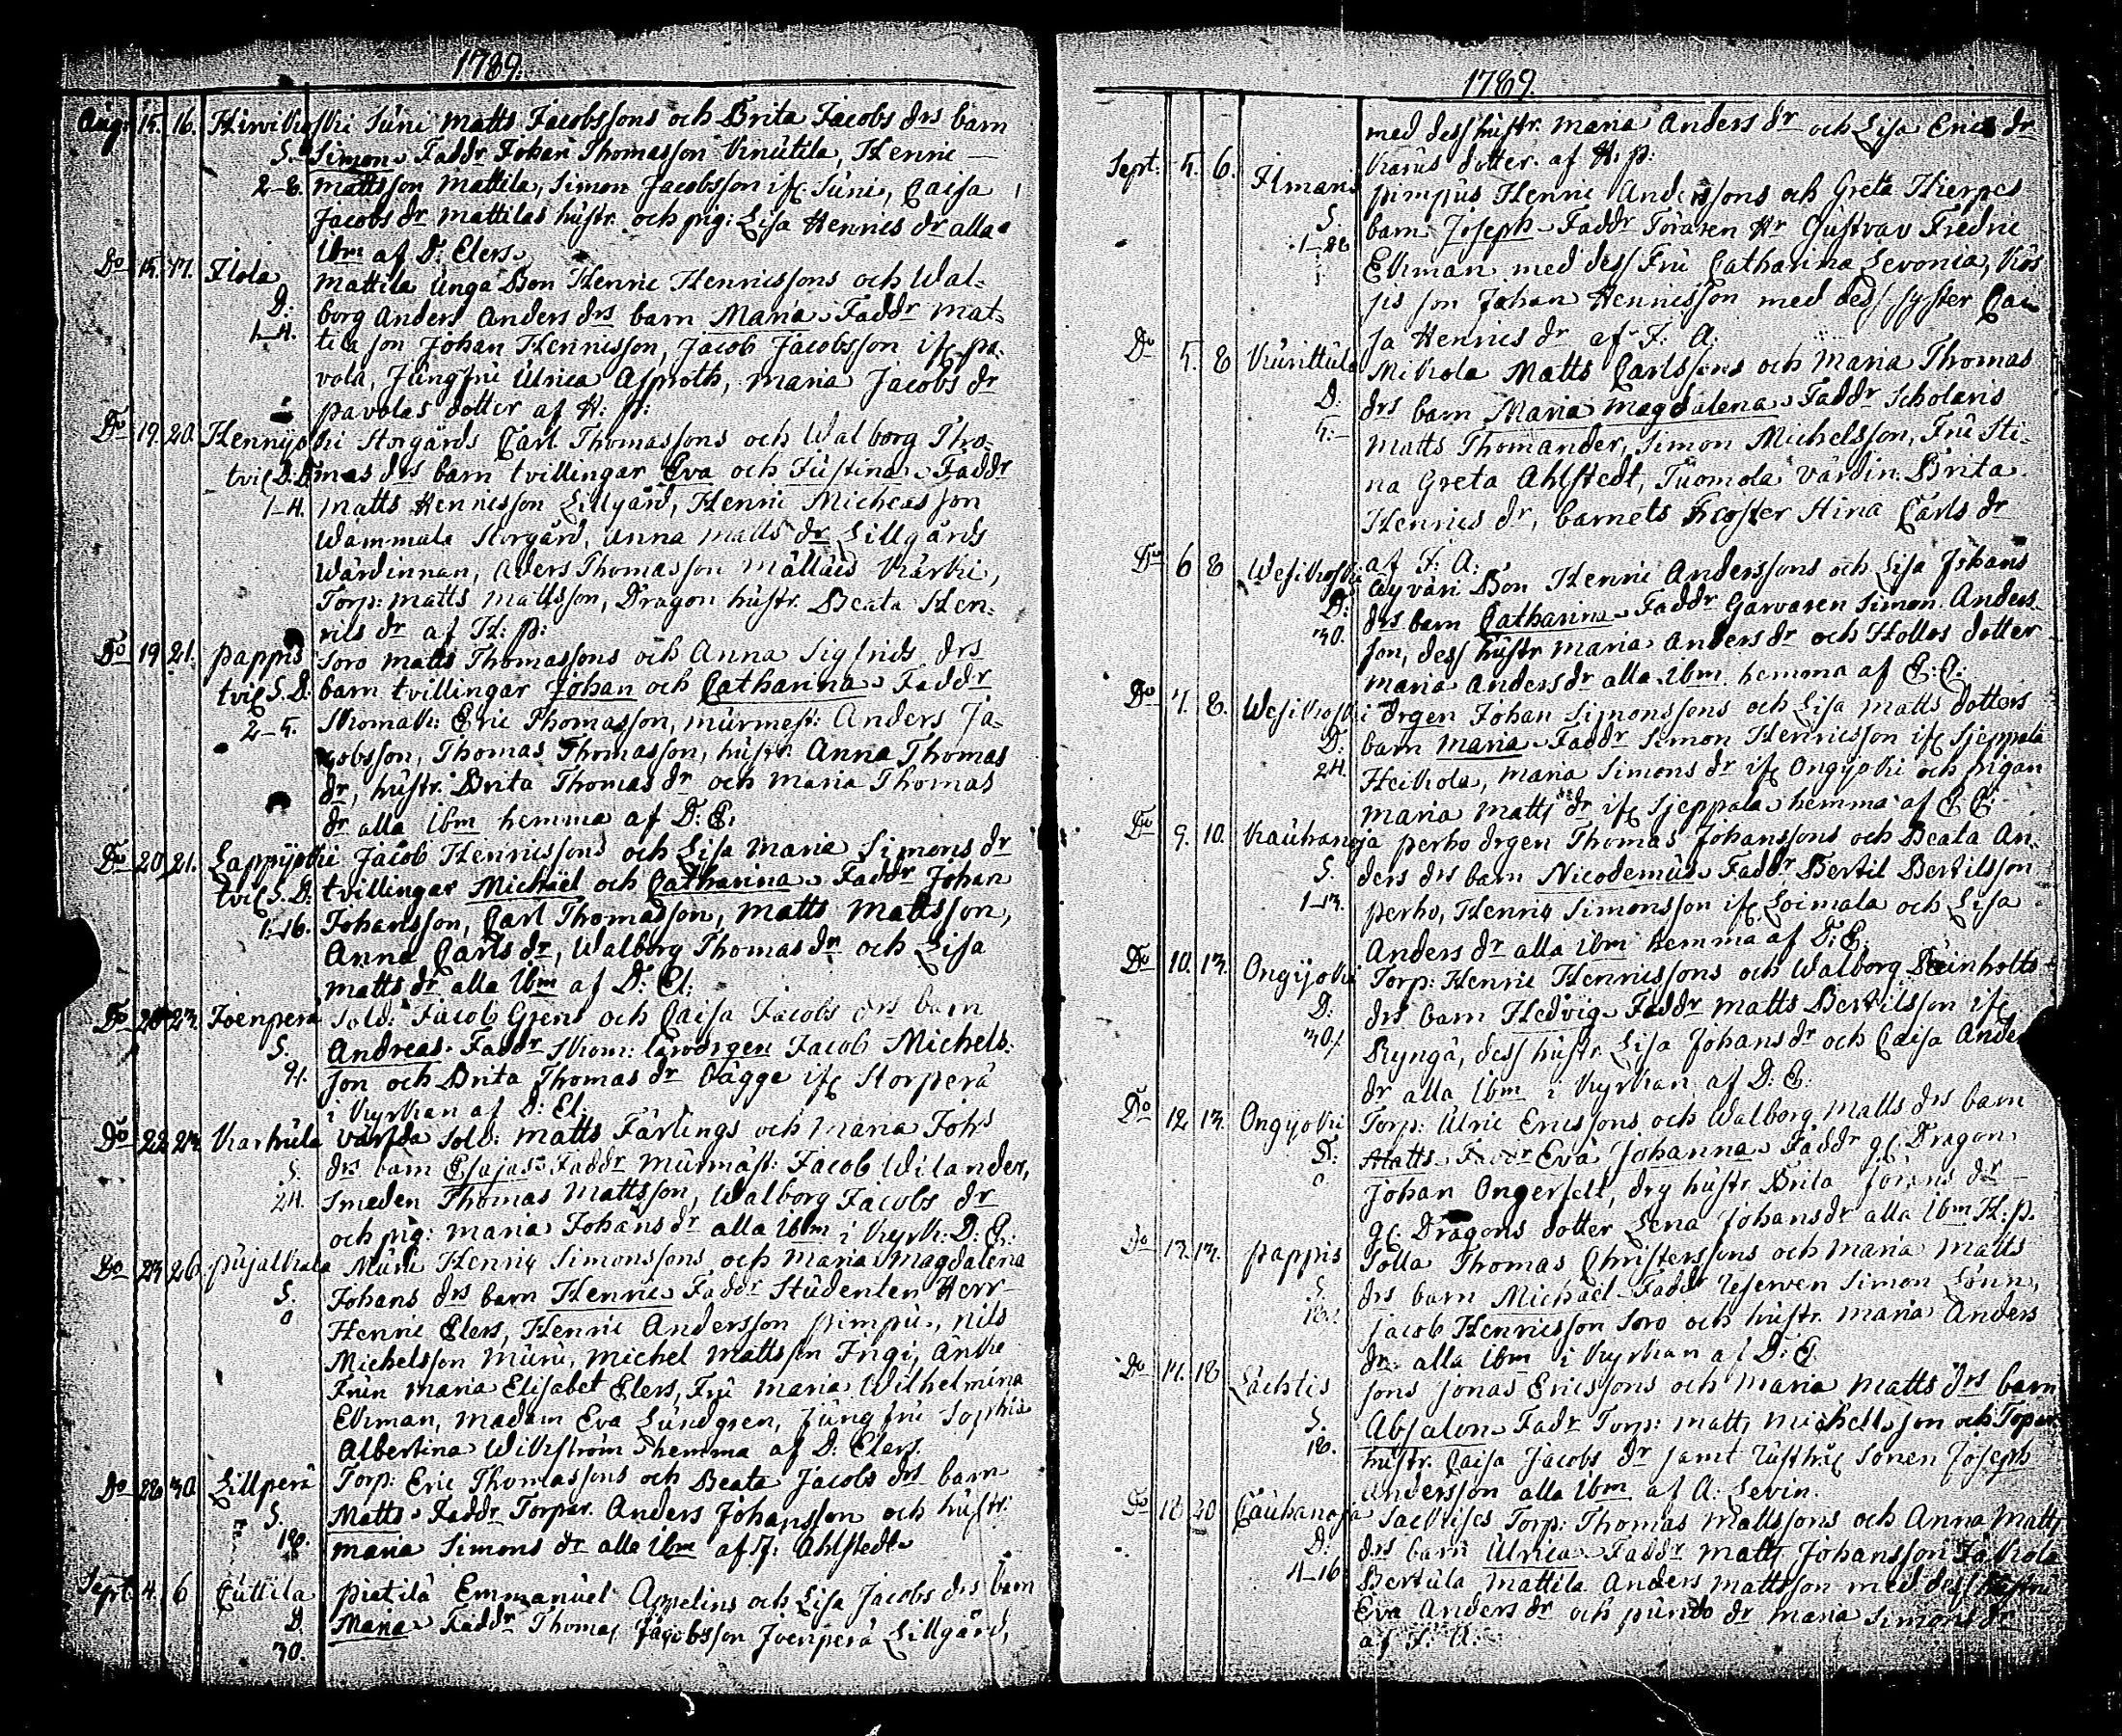 1789.
Aug: 15. 16. Hirvikoski Suni Matts Jacobssons och Brita Jacobs drs barn
S. Simon. Faddr Johan Thomasson Knutila, Henric
2-8. Mattsson Mattila, Simon Jacobsson if: Suni, Caisa
Jacobs dr Mattilas hustr. och pig: Lisa Henrics dr alla
ibm af D: Elers.
Do 15. 17. Flola Mattila unga Bon Henric Henricssons och Wal-
D: borg Anders Anders drs barn Maria. Faddr Mat-
1-4. tila son Johan Henricsson, Jacob Jacobsson if: pa-
vola, Jungfru Ulrica Asproth, Maria Jacobs dr
pavolas dotter af H: p:
Do 19. 20. Hennijoki Storgårds Carl Thomassons och Walborg Tho-
tvil D:D: mas drs barn tvillingar Eva och Justina. Faddr
1-4. Matts Henricsson Lillgård, Henric Micheasson
Wammala Storgård, Anna Matts dr Lillgårds
Wärdinnan, Aders Thomasson Mällais Kärki,
Torp: Matts Mattsson, Dragon hustr. Beata Hen-
rics dr af H: p:
Do 19 21. pappis Soro Matts Thomassons och Anna Sigfrids drs
tvil S. D: barn tvillingar Johan och Catharina. Faddr
2-5. Skomak: Eric Thomasson, murmest: Anders Ja-
cobsson, Thomas Thomasson, hustr: Anna Thomas
dr, hustr. Brita Thomas dr och Maria Thomas
dr alla ibm hemma af D: E.
Do 20 21. Lappijoki Jacob Henricssons och Lisa Maria Simons dr
tvil S. D: tvillingar Michaël och Catharina. Faddr Johan
1-16. Johansson, Carl Thomasson, Matts Mattsson,
Anna Carls dr, Walborg Thomas dr och Lisa
Matts dr alla ibm af D: El:
Do 20 23. Joenperä Sold: Jacob Grens och Caisa Jacobs drs barn
S. Andreas. Faddr Skom: lärdrgen Jacob Michels-
son och Brita Thomas dr Bägge if: Storperä
i Kyrkan af D: El:
Do 22 23. Karhula värfda Sold: Matts Färlings och Maria Johs
S. drs barn Esajas. Faddr Murmäst: Jacob Wilander,
24. Smeden Thomas Mattsson, Walborg Jacobs dr
och pig: Maria Johans dr alla ibm i Kyrk: D: E:
Do 23 26. pujalkala Muru Henric Simonssons och Maria Magdalena
S. Johans drs barn Henric. Faddr Studenten Herr
Henric Elers, Henric Andersson pimpu, Nils
Michelsson Muru, Michel Mattsson Ingi, änke
Frun Maria Elisabet Elers, Fru Maria Wilhelmina
Ekman, Madam Eva Lundgren, Jungfru Sophia
Albertina Wikström hemma af D: Elers.
Do 28 30. Lillperä Torp: Eric Thomassons och Beata Jacobs drs barn
S. Matts. Faddr Torpar. Anders Johansson och hustr:
18. Maria Simons dr alla ibm af F: Ahlstedt
Sept. 4. 6 Cuttila pietilä Emmanuel Appelins och Lisa Jacobs drs barn
D. Maria. Faddr Thomas Jacobsson Joenperä Lillgård,
30.
1789.
med dess hustr. Maria Anders dr och Lisa Erics dr
Karus dotter. af H. p:
Sept: 5. 6. Ilmaris pimpus Henric Anderssons och Greta Hierpes
S. barn Joseph. Faddr Föraren Hr Gustvav Fredric
1-28 Ekman med dess Fru Catharina Levonia, Kös
sis son Johan Henricsson med dess syster Cai
sa Henrics dr af F: A:
Do 5. 8 Kurittula Mikola Matts Carlssons och Maria Thomas
D. drs barn Maria Magdalena. Faddr Scholaris
4:- Matts Thomander, Simon Michelsson, Fru Sti-
na Greta Ahlstedt, Tuomola värdin. Brita
Henrics dr, barnets Faster Stina Carls dr
af F: A:
Do 6 8 Wesikoski Äyväri Bon Henric Anderssons och Lisa Johans
D: drs barn Catharina. Faddr Garvaren Simon Anders-
30. son, dess hustr Maria Anders dr och Hollos dotter
Maria Anders dr alla ibm hemma af E: A:
Do 7. 8. Wesikoski drgen Johan Simonssons och Lisa Matts dotters
D: barn Maria. Faddr Simon Henricsson if: Sjeppälä
24. Heikola, Maria Simons dr if: Ongijoki och pigan
Maria Matts dr if: Sjeppälä hemma af E: E:
Do 9. 10. Kauhanoja perho drgen Thomas Johanssons och Beata An-
S. ders drs barn Nicodemus. Faddr Bertil Bertilsson
1-13. perho, Henric Simonsson if: Loimala och Lisa
Anders dr alla ibm hemma af D: E:
Do 10. 13. Ongijoki Torp: Henric Henricssons och Walborg Reinholts
D. drs barn Hedvig. Faddr Matts Bertilsson if:
30. Ryngä, dess hustr Lisa Johans dr och Caisa Ande
dr alla ibm i Kyrkan af D: E:
Do 12 13. Ongijoki Torp: Ulric Ericssons och Walborg Matts drs barn
D: Matts. Faddr Eva Johanna. Faddr gl: Dragon
Johan Ongerfelt, dess hustr Brita Jörans dr
gl: Dragons dotter Lena Johans dr alla ibm H: p.
Do 13. 13. pappis Tolla Thomas Christerssons och Maria Matts
S. drs barn Michaël. Faddr Reserven Simon Lönn,
18. Jacob Henricsson Soro och hustr. Maria Anders
dr. alla ibm i Kyrkan af D: E.
Do 14. 18 Lächtis Jons Jonas Ericssons och Maria Matts drs barn
S. Absalon. Fadr Torp: Matts Michellsson och Topar
18. hustr. Caisa Jacobs dr samt Rusth: Sonen Joseph
Andersson alla ibm af A: Levin.
Do 18 20 Cauhanoja Torp: Thomas Mattssons och Anna Matts
D. drs barn Ulrica. Faddr Matts Johansson Jakola
4-16 Bertula Mattila Anders Mattsson med dess hustru
Eva Anders dr och dr Maria Simons dr
af F: A: